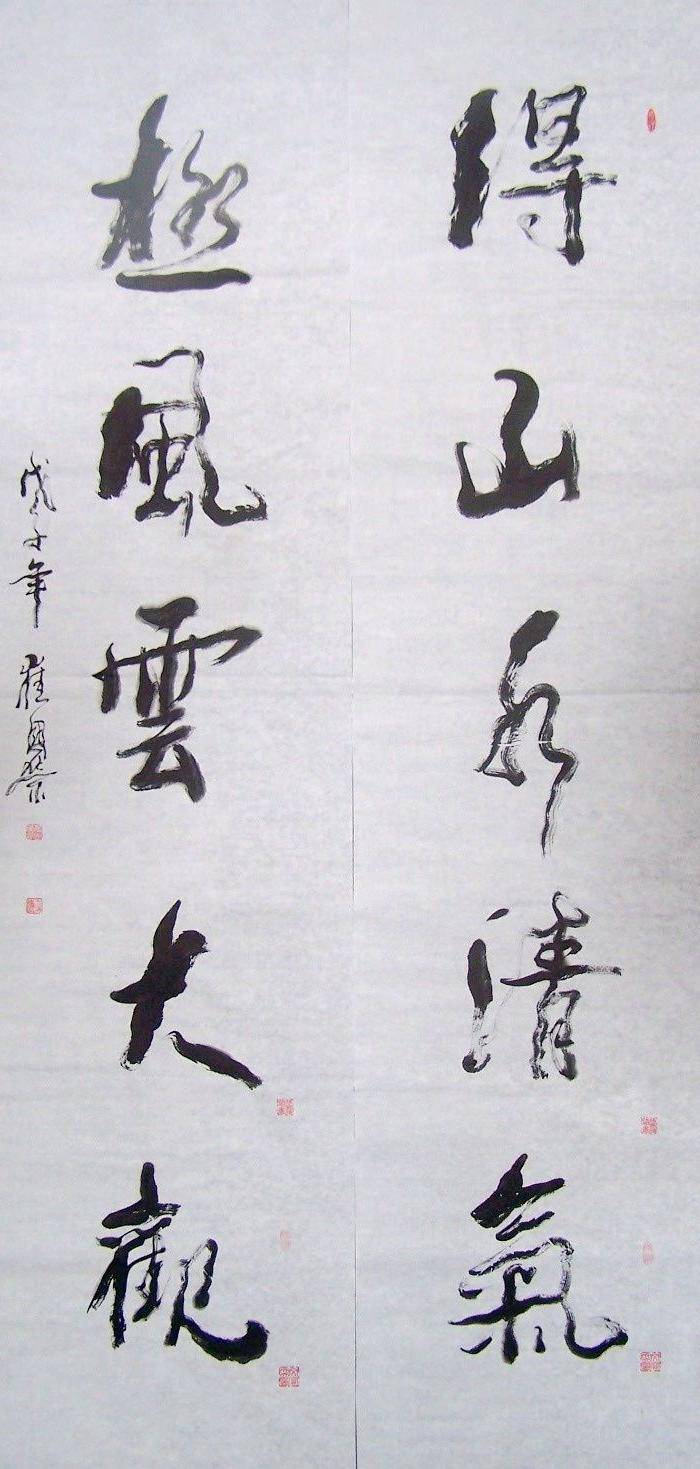 得山水清氣
極風雲大觀
戊子年 崔國